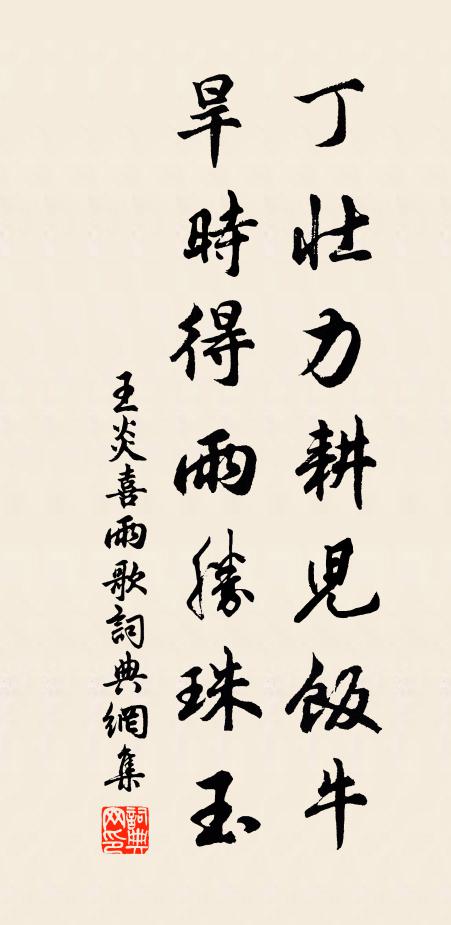 丁壯力耕兒飯牛
旱時得雨勝珠玉
王炎喜雨歌詞典網集
詞典
網印